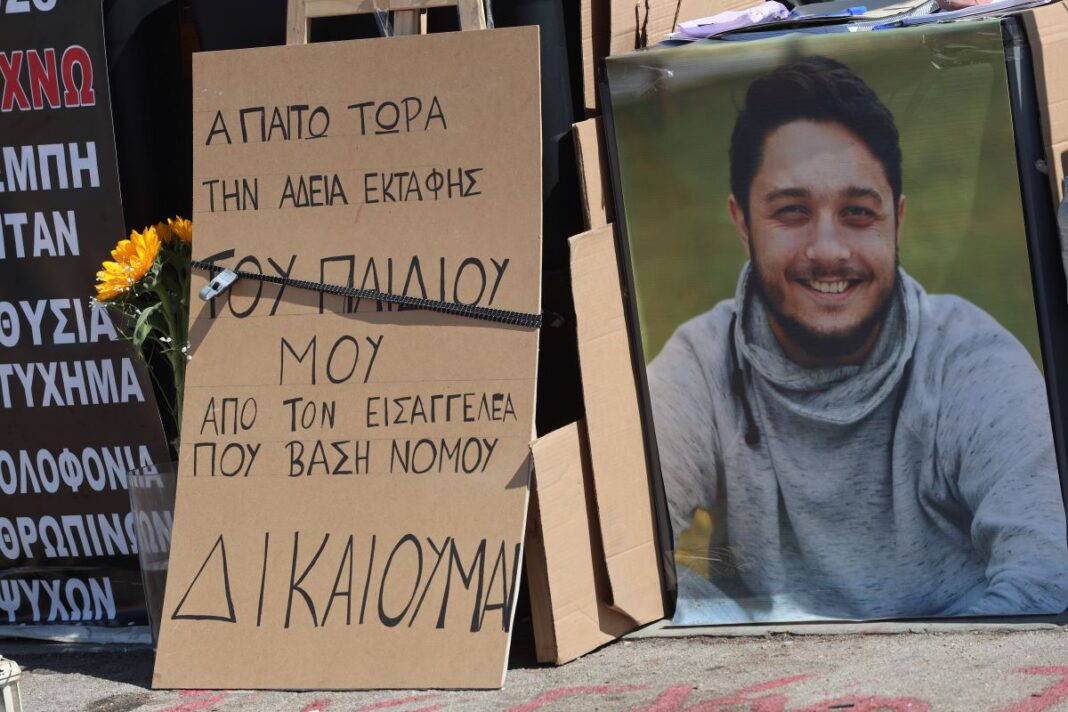 ΧΝΩ
ΕΜΠΗ
ΤΑΝ
ΘΥΣΙΑ
ΤΥΧΗΜΑ
ΟΛΟΦΟΝΙΑ
ΘΡΩΠΙΝΩΝ
ΨΥΧΩΝ
ΑΠΑΙΤΩ ΤΩΡΑ
ΤΗΝ ΑΔΕΙΑ ΕΚΤΑΦΗΣ
ΤΟΥ ΠΑΙΔΙΟΥ
ΜΟΥ
ΑΠΟ ΤΟΝ ΕΙΣΑΓΓΕΛΕΑ
ΠΟΥ ΒΑΣΗ ΝΟΜΟΥ
ΔΙΚΑΙΟΥΜΑΙ